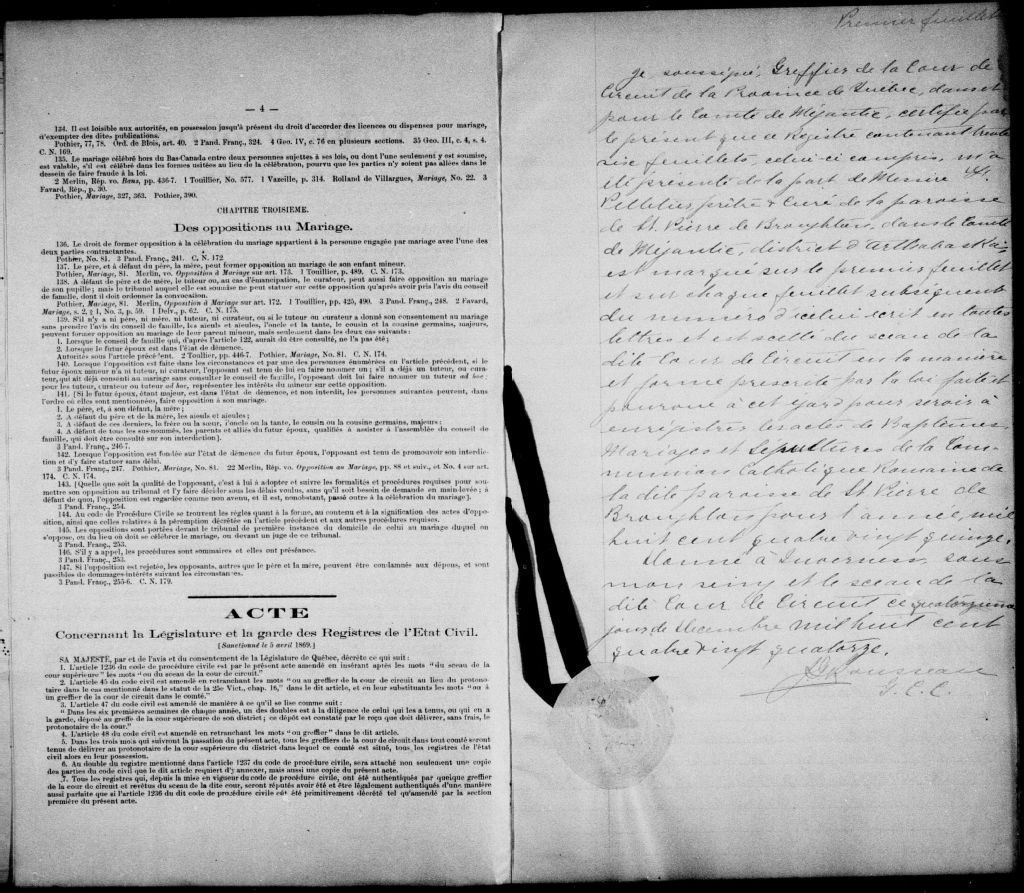 — 4 —
134. Il est loisible aux autorités, en possession jusqu'à présent du droit d'accorder des licences ou dispenses pour mariage,
d'exempter des dites publications.
Pothier, 77, 78. Ord. de Blois, art. 40. 2 Pand. Franç., 324. 4 Geo. IV, c. 76 en plusieurs sections. 35 Geo. III, c. 4, s. 4.
C. N. 169.
135. Le mariage célébré hors du Bas-Canada entre deux personnes sujettes à ses lois, ou dont l'une seulement y est soumise,
est valable, s'il est célébré dans les formes usitées au lieu de la célébration, pourvu que les parties n'y soient pas allées dans le
dessein de faire fraude à la loi.
2 Merlin, Rép. vo. Bans, pp. 436-7. 1 Touillier, No. 577. 1 Vazeille, p. 314. Rolland de Villargues, Mariage, No. 22. 3
Favard, Rép., p. 30.
Pothier, Mariage, 327, 363. Pothier, 390.
CHAPITRE TROISIEME.
Des oppositions au Mariage.
136. Le droit de former opposition à la célébration du mariage appartient à la personne engagée par mariage avec l'une des
deux parties contractantes.
Pothier, No. 81. 3 Pand. Franç., 241. C. N. 172
137. Le père, et à défaut du père, la mère, peut former opposition au mariage de son enfant mineur.
Pothier, Mariage, 81. Merlin, vo. Opposition à Mariage sur art. 173. 1 Touillier, p. 489. C. N. 173.
138. A défaut de père et de mère, le tuteur ou, au cas d'émancipation, le curateur, peut aussi faire opposition au mariage
de son pupille; mais le tribunal auquel elle est soumise ne peut statuer sur cette opposition qu'après avoir pris l'avis du conseil
de famille, dont il doit ordonner la convocation.
Pothier, Mariage, 81. Merlin, Opposition à Mariage sur art. 172. 1 Touillier, pp. 425, 490. 3 Pand. Franç., 248. 2 Favard,
Mariage, s. 2, § 1, No. 3, p. 59. 1 Delv., p. 62. C. N. 175.
139. S'il n'y a ni père, ni mère, ni tuteur, ni curateur, ou si le tuteur ou curateur a donné son consentement au mariage
sans prendre l'avis du conseil de famille, les aïeuls et aïeules, l'oncle et la tante, le cousin et la cousine germains, majeurs,
peuvent former opposition au mariage de leur parent mineur, mais seulement dans les deux cas suivants:
1. Lorsque le conseil de famille qui, d'après l'article 122, aurait du être consulté, ne l'a pas été;
2. Lorsque le futur époux est dans l'état de démence.
Autorités sous l'article précédent. 2 Toullier, pp. 446-7. Pothier, Mariage, No. 81. C. N. 174.
140. Lorsque l'opposition est faite dans les circonstances et par une des personnes énumérées en l'article précédent, si le
futur époux mineur n'a ni tuteur, ni curateur, l'opposant est tenu de lui en faire nommer un; s'il a déjà un tuteur, ou cura-
teur, qui ait déjà consenti au mariage sans consulter le conseil de famille, l'opposant doit lui faire nommer un tuteur ad hoc;
pour les tuteur, curateur ou tuteur ad hoc, représenter les intérêts du mineur sur cette opposition.
141. [Si le futur époux, étant majeur, est dans l'état de démence, et non interdit, les personnes suivantes peuvent, dans
l'ordre où elles sont mentionnées, faire opposition à son mariage.
1. Le père, et, à son défaut, la mère;
2. A défaut du père et de la mère, les aïeuls et aïeules;
3. A défaut de ces derniers, le frère ou la sœur, l'oncle ou la tante, le cousin ou la cousine germains, majeurs:
4. A défaut de tous les sus-nommés, les parents et alliés du futur époux, qualifiés à assister à l'assemblée du conseil de
famille, qui doit être consulté sur son interdiction].
3 Pand. Franç., 246-7.
142. Lorsque l'opposition est fondée sur l'état de démence du futur époux, l'opposant est tenu de promouvoir son interdic-
tion et d'y faire statuer sans délai.
3 Pand. Franç., 247. Pothier, Mariage, No. 81. 22 Merlin, Rép. vo. Opposition au Mariage, pp. 88 et suiv., et No. 4 sur art.
174. C. N. 174.
143. [Quelle que soit la qualité de l'opposant, c'est à lui à adopter et suivre les formalités et procédures requises pour sou-
mettre son opposition au tribunal et l'y faire décider sous les délais voulus, sans qu'il soit besoin de demande en main-levée; à
défaut de quoi, l'opposition est regardée comme non avenu, et il est, nonobstant, passé outre à la célébration du mariage].
3 Pand. Franç., 254.
144. Au code de Procédure Civile se trouvent les règles quant à la forme, au contenu et à la signification des actes d'oppo-
sition, ainsi que celles relatives à la péremption décrétée en l'article précédent et aux autres procédures requises.
145. Les oppositions sont portées devant le tribunal de première instance du domicile de celui au mariage duquel on
s'oppose, ou du lieu où doit se célébrer le mariage, ou devant un juge de ce tribunal.
3 Pand. Franç., 253.
146. S'il y a appel, les procédures sont sommaires et elles ont préséance.
3 Pand. Franç., 253.
147. Si l'opposition est rejetée, les opposants, autres que le père et la mère, peuvent être condamnés aux dépens, et sont
passibles de dommages-intérêts suivant les circonstances.
3 Pand. Franç., 255-6. C. N. 179.
ACTE
Concernant la Législature et la garde des Registres de l'Etat Civil.
[Sanctionné le 5 avril 1869.]
SA MAJESTÉ, par et de l'avis et du consentement de la Législature de Québec, décrète ce qui suit:
1. L'article 1236 du code de procédure civile est par le présent acte amendé en insérant après les mots "du sceau de la
cour supérieure" les mots "ou du sceau de la cour de circuit."
2. L'article 45 du code civil est amendé en retranchant les mots "ou au greffier de la cour de circuit au lieu du protono-
taire dans le cas mentionné dans le statut de la 25e Vict., chap. 16," dans le dit article, et en leur substituants les mots "ou à
un greffier de la cour de circuit dans le comté."
3. L'article 47 du code civil est amendé de manière à ce qu'il se lise comme suit:
"Dans les six premières semaines de chaque année, un des doubles est à la diligence de celui qui les a tenus, ou qui en a
la garde, déposé au greffe de la cour supérieure de son district; ce dépôt est constaté par le reçu que doit délivrer, sans frais, le
protonotaire de la cour."
4. L'article 48 du code civil est amendé en retranchant les mots "ou greffier" dans le dit article.
5. Dans les trois mois qui suivront la passation du présent acte, tous les greffiers de la cour de circuit dans tout comté seront
tenus de délivrer au protonotaire de la cour supérieure du district dans lequel ce comté est situé, tous les registres de l'état
civil alors en leur possession.
6. Au double du registre mentionné dans l'article 1237 du code de procédure civile, sera attaché non seulement une copie
des parties du code civil que le dit article requiert d'y annexer, mais aussi une copie du présent acte.
7. Tous les registres qui, depuis la mise en vigueur du code de procédure civile, ont été authentiqués par quelque greffier
de la cour de circuit et revêtus du sceau de la dite cour, seront réputés avoir été et être légalement authentiqués d'une manière
aussi parfaite que si l'article 1236 du dit code de procédure civile eût été primitivement décrété tel qu'amendé par la section
première du présent acte.
Premier feuillet
Je soussigné, Greffier de la Cour de
Circuit de la Province de Québec, dans et
pour le Comté de Mégantic, certifie par
le présent que ce Registre contenant trente
six feuillets, celui-ci compris, m'a
été présenté de la part de Messire
Pelletier prêtre & Curé de la paroisse
de St. Pierre de Broughton, dans le Comté
de Mégantic, district d'Arthabaska
est marqué sur le premier feuillet
et sur chaque feuillet subséquent
du numéro d'icelui écrit en toutes
lettres et est scellé du sceau de la
dite Cour de Circuit en la manière
et forme prescrite par la loi faite et
pourvue à cet égard pour servir à
enregistrer les actes de Baptêmes,
Mariages et Sépultures de la Com-
munion Catholique Romaine de
la dite paroisse de St Pierre de
Broughton pour l'année mil
huit cent quatre vingt quinze.
Donné à Inverness, sous
mon seing et le sceau de la
dite Cour de Circuit ce quatorzième
jour de Décembre mil huit cent
quatre vingt quatorze.
G. C. C.